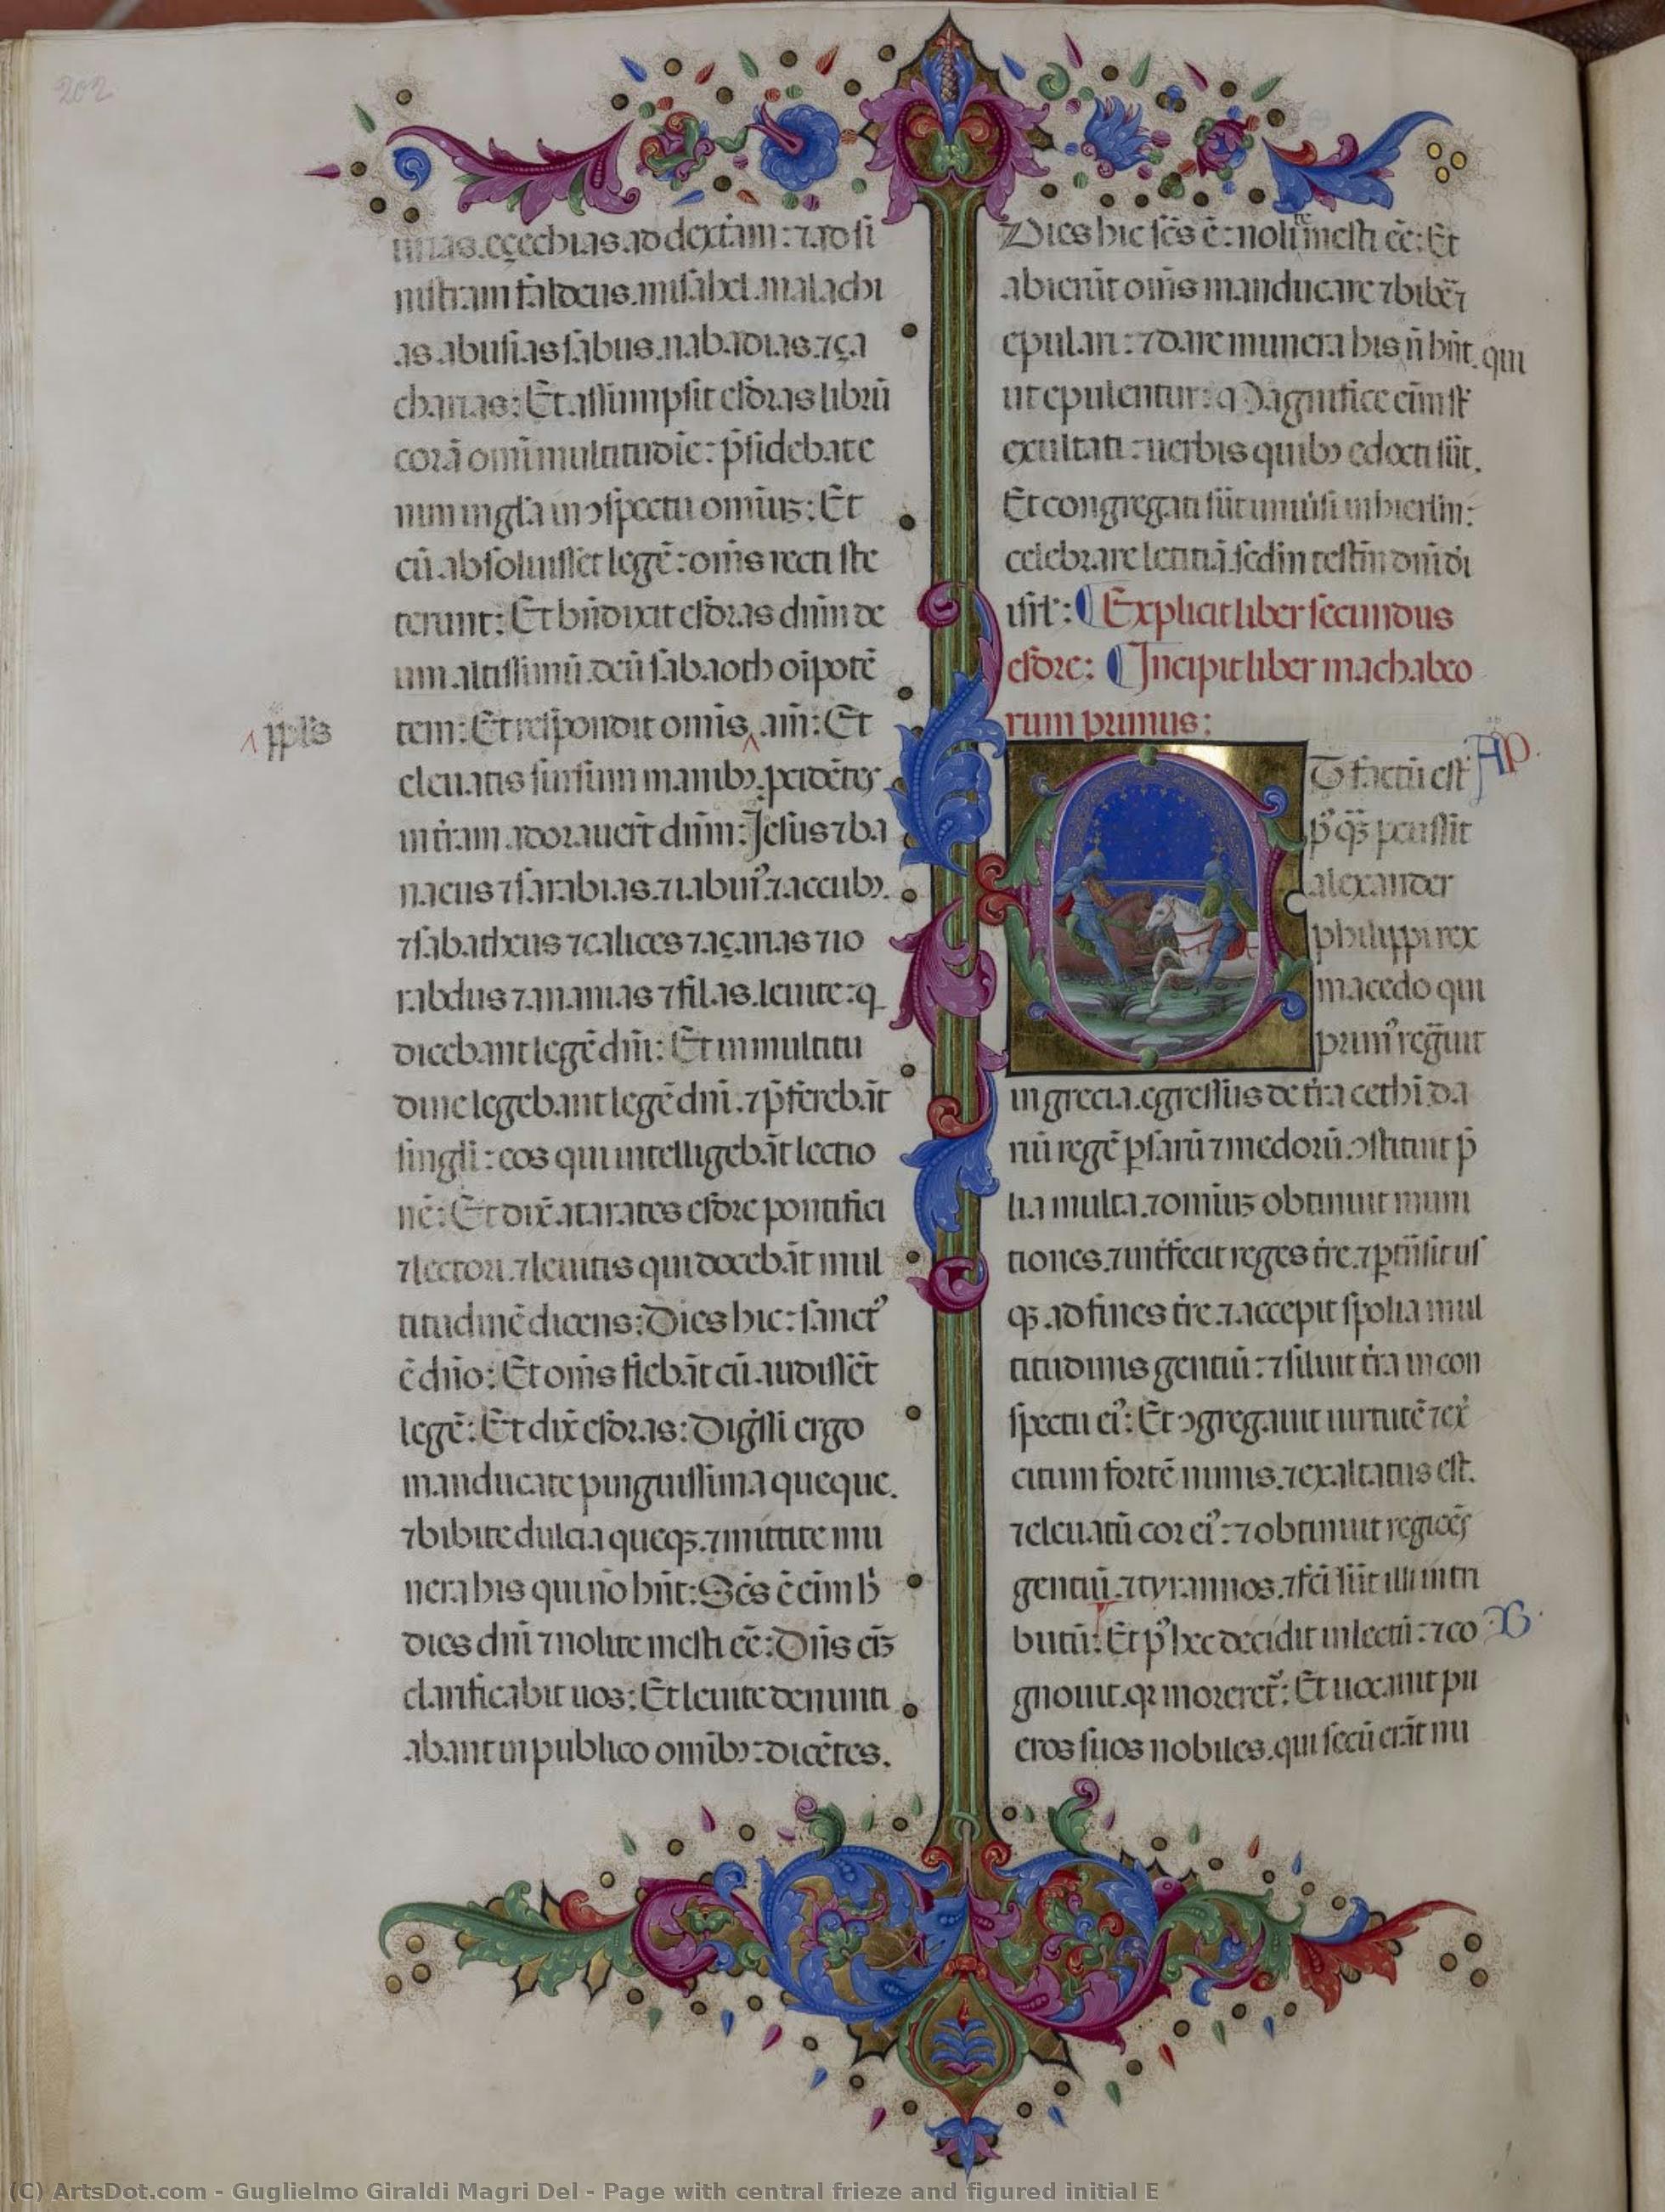 202
urias. eçechias. ad dext̄am: ⁊ ad si
nistram faldeus. misahel. malachi
as abusias sabus. nabadias. ⁊ ça
charias: Et assumpsit esdras librū
corā omī multitudīe: p̄sidebat e
nim in gl̄a in ɔspectu omīuʒ: Et
cū absoluisset legē: om̄s recti ste
terunt: Et bn̄dixit esdras dn̄m de
um altissimū. deū sabaoth oīpotē
ppl̄s
tem: Et respondit omīs. am̄: Et
eleuatis sursum manibꝰ. procidētes
in t̄ram. adorauer̄t dn̄m: Jesus ⁊ ba
naeus ⁊ sarabias. ⁊ iabui ⁊ accubꝰ.
⁊ sabatheus ⁊ calices ⁊ açarias ⁊ io
rabdus ⁊ ananias ⁊ filas. leuite: q
docebant legē dn̄i: Et in multitu
dine legebant legē dn̄i. ⁊ p̄ferebāt
singl̄i: eos qui intelligebāt lectio
nē: Et dix̄ atarates esdre pontifici
⁊ lectori. ⁊ leuitis qui docebāt mul
titudinē dicens: Dies hic: sanctꝰ
ē dn̄o: Et om̄s flebāt cū audissēt
legē: Et dix̄ esdras: Digssi ergo
manducate pinguissima queque.
⁊ bibite dulcia queqꝫ. ⁊ mittite mu
nera his qui nō hn̄t: Sc̄s ē eīm h̄
dies dn̄i ⁊ nolite mesti eē: Dn̄s eīʒ
clarificabit uos: Et leuite denunti
abant in publico omībꝰ: dicētes.
Dies hic sc̄s ē: nolite mesti eē: Et
abierūt om̄s manducare ⁊ biber̄ ⁊
epulari: ⁊ dare munera his n̄ hn̄t. qui
ut epulentur: Magnifice eīm st̄
exultati: uerbis quibꝰ edocti sūt.
Et congregati sūt uniūsi in hierl̄m:
celebrare letitiā. sedm̄ testm̄ dn̄i di
isrl̄: Explicit liber secundus
esdre: Incipit liber machabeo
rum primus:
Ap.
T factū est
pꝰqꝫ percussit
alexander
philippi rex
macedo qui
primꝰ regn̄uit
in grecia. egressus de t̄ra cethi. da
riū regē ꝑsarū ⁊ medorū. ɔstituit p̄
lia multa. ⁊ omīuʒ obtinuit muni
tiones. ⁊ int̄fecit reges t̄re. ⁊ ꝑtn̄siit us
qꝫ ad fines t̄re. ⁊ accepit spolia mul
titudinis gentiū: ⁊ siluit t̄ra in con
spectu eiꝰ: Et ɔgregauit uirtutē ⁊ ex̄
citum fortē nimis. ⁊ exaltatus est.
⁊ eleuatū cor eiꝰ: ⁊ obtinuit regioēs
gentiū. ⁊ tyrannos. ⁊ fc̄i sūt illi in tri
butū: Et pꝰ hec decidit in lectū: ⁊ co
B
gnouit. qꝛ morerēt: Et uocauit pu
eros suos nobiles. qui secū erāt nu
(C) ArtsDot.com - Guglielmo Giraldi Magri Del - Page with central frieze and figured initial E